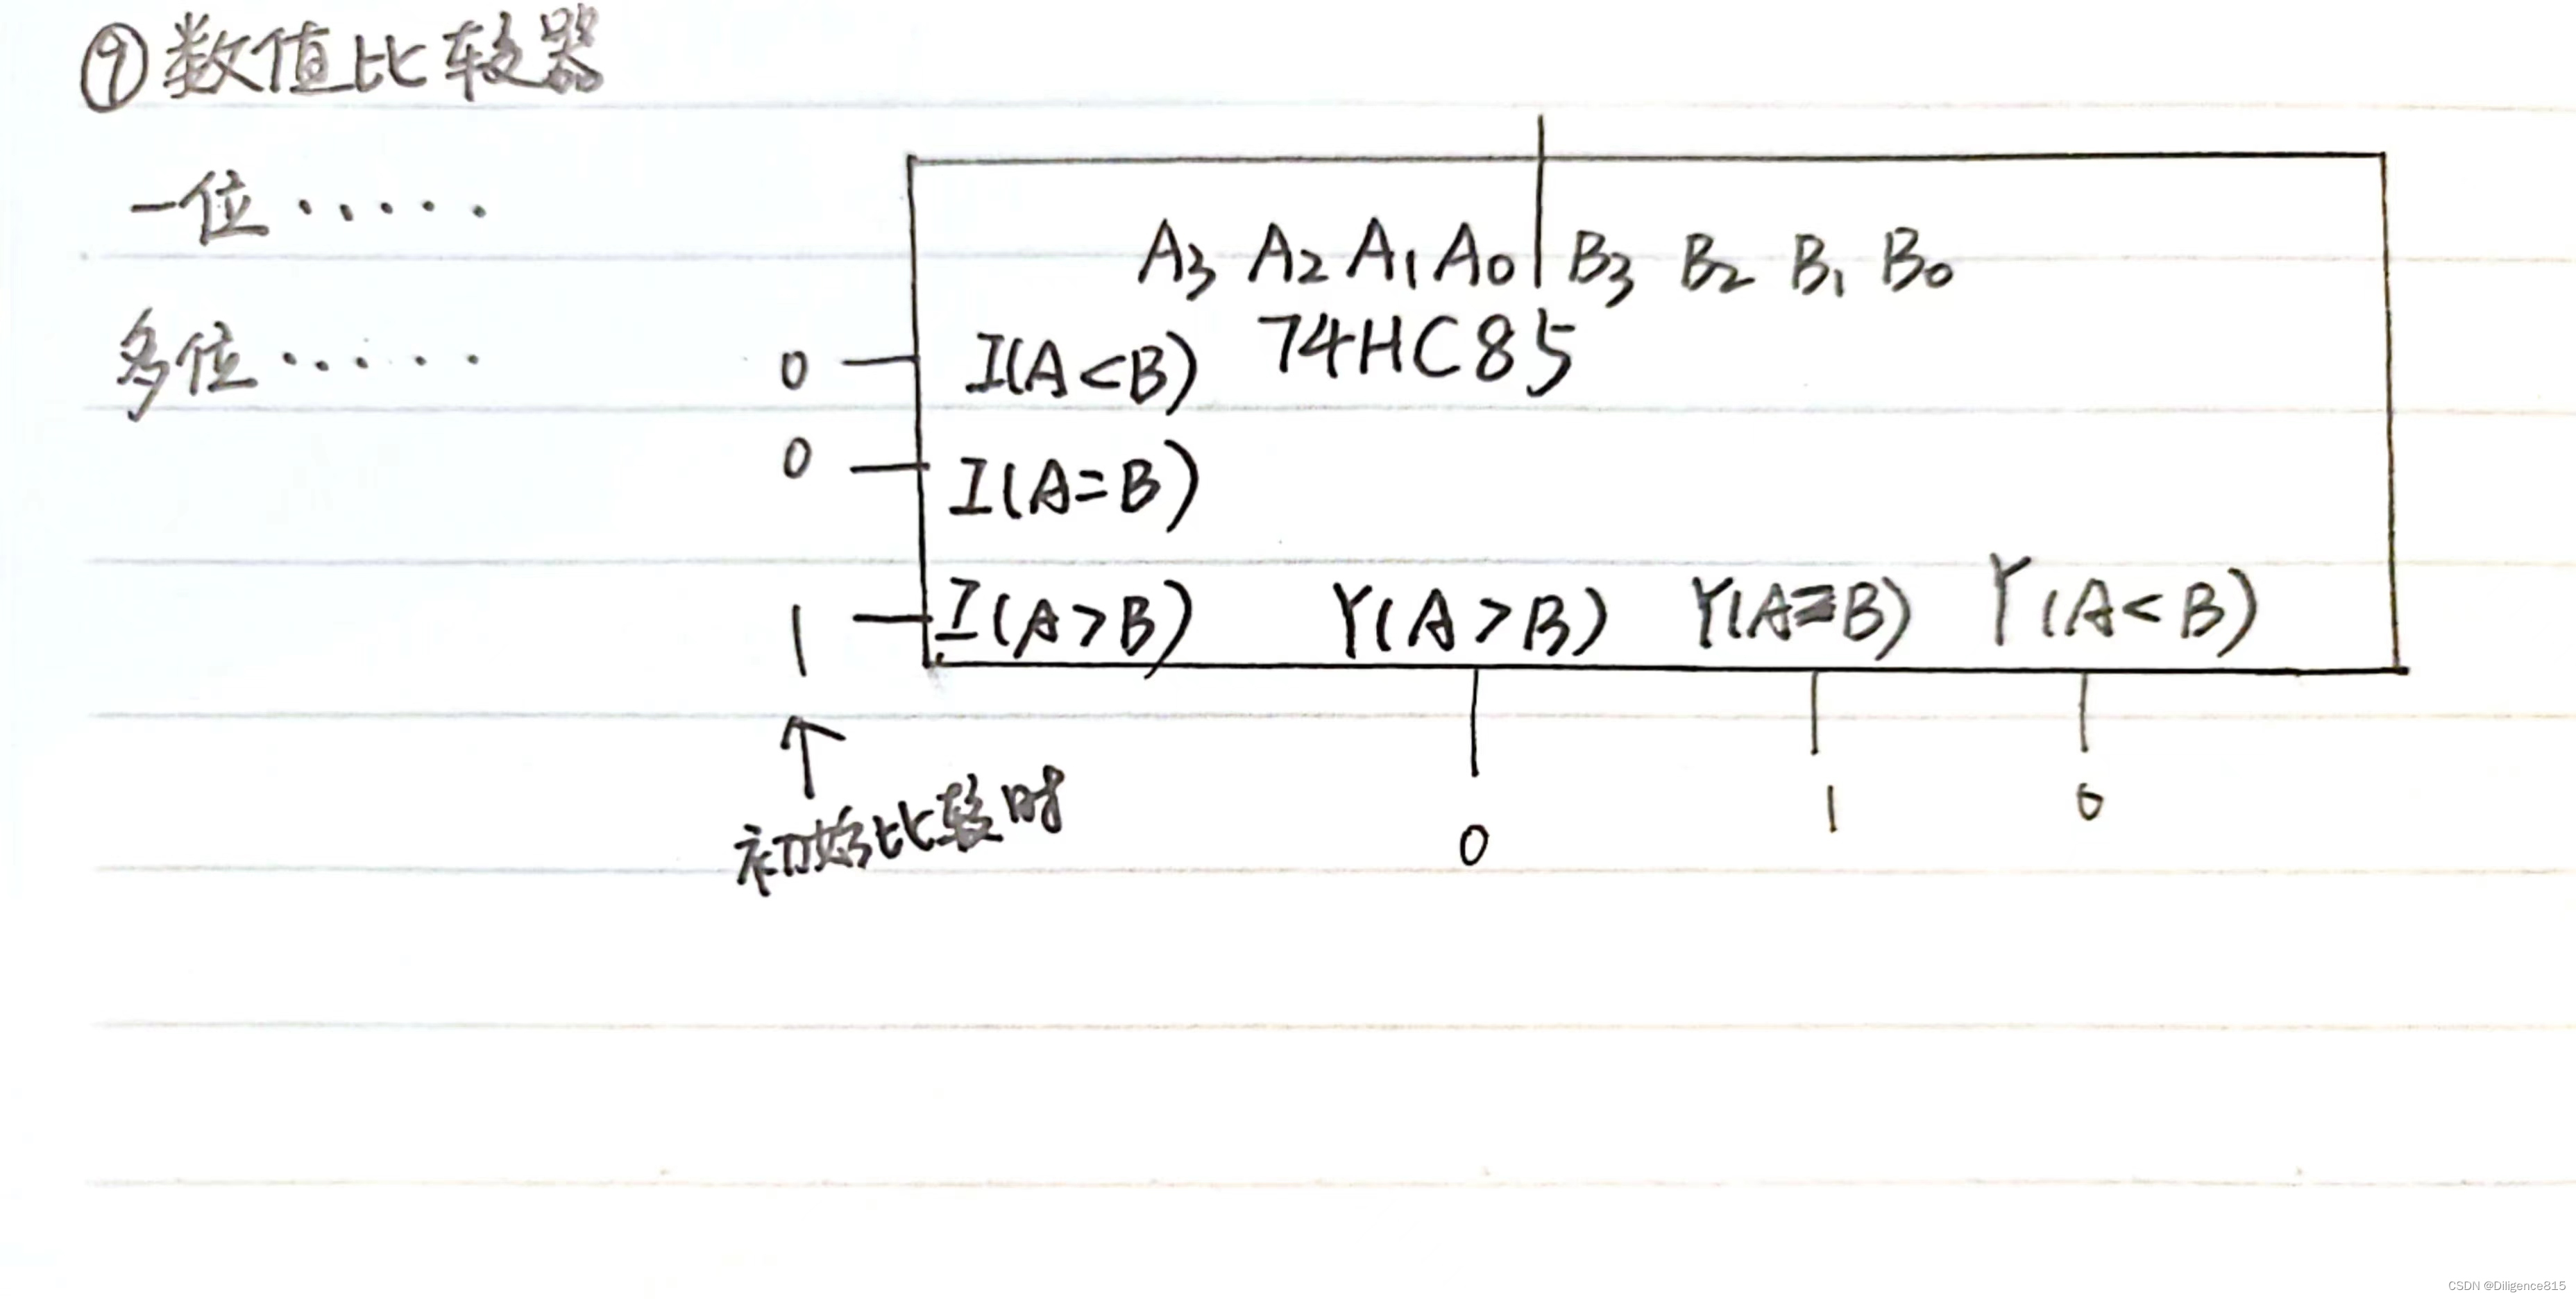 ⑨数值比较器
一位·····
多位·····
A₃ A₂ A₁ A₀ B₃ B₂ B₁ B₀
74HC85
0 I(A<B)
0 I(A=B)
1 I(A>B) Y(A>B) Y(A=B) Y(A<B)
0 1 0
↑
初始比较时
CSDN @Diligence815